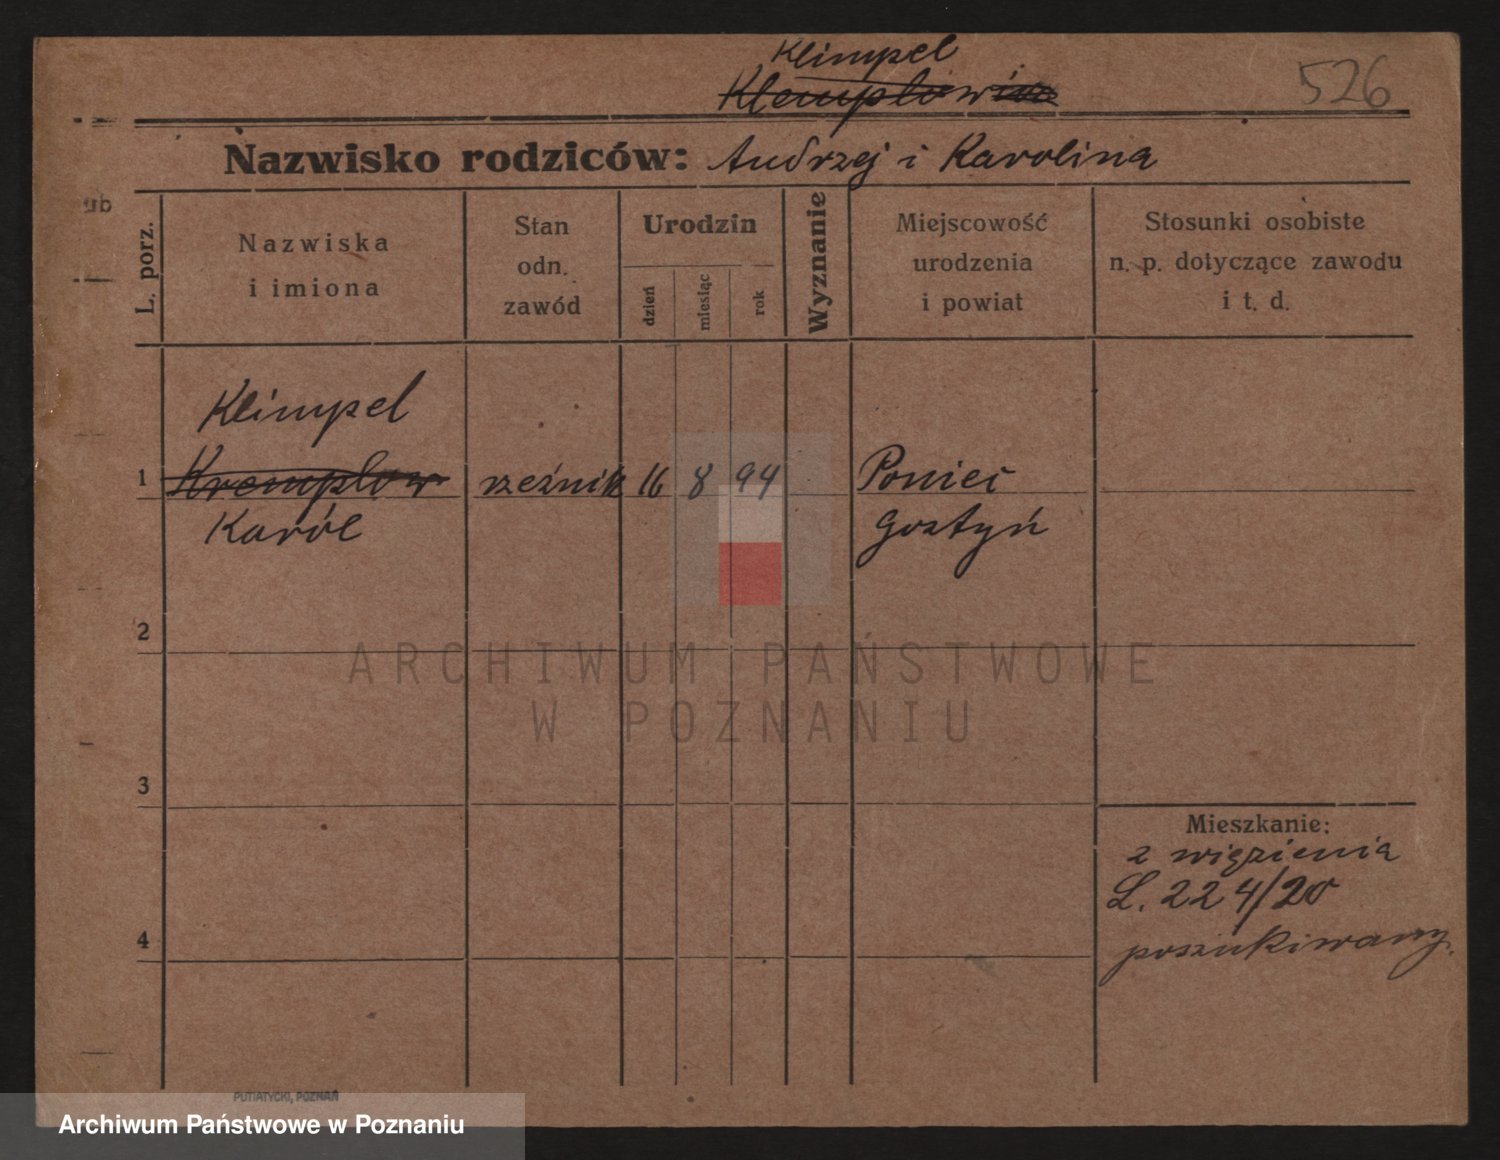 Klimpel
526
Nazwisko rodziców: Andrzej i Karolina
L. porz.
Nazwiska
i imiona
Stan
odn.
zawód
Urodzin
dzień
miesiąc
rok
Wyznanie
Miejscowość
urodzenia
i powiat
Stosunki osobiste
n. p. dotyczące zawodu
i t. d.
Klimpel
1 Kremplow rzeźnik 16 8 94 Poniec
Karól Gostyń
2
ARCHIWUM PAŃSTWOWE
W POZNANIU
3
Mieszkanie:
z więzienia
L. 224/20
poszukiwany.
4
PUTIATYCKI, POZNAŃ
Archiwum Państwowe w Poznaniu